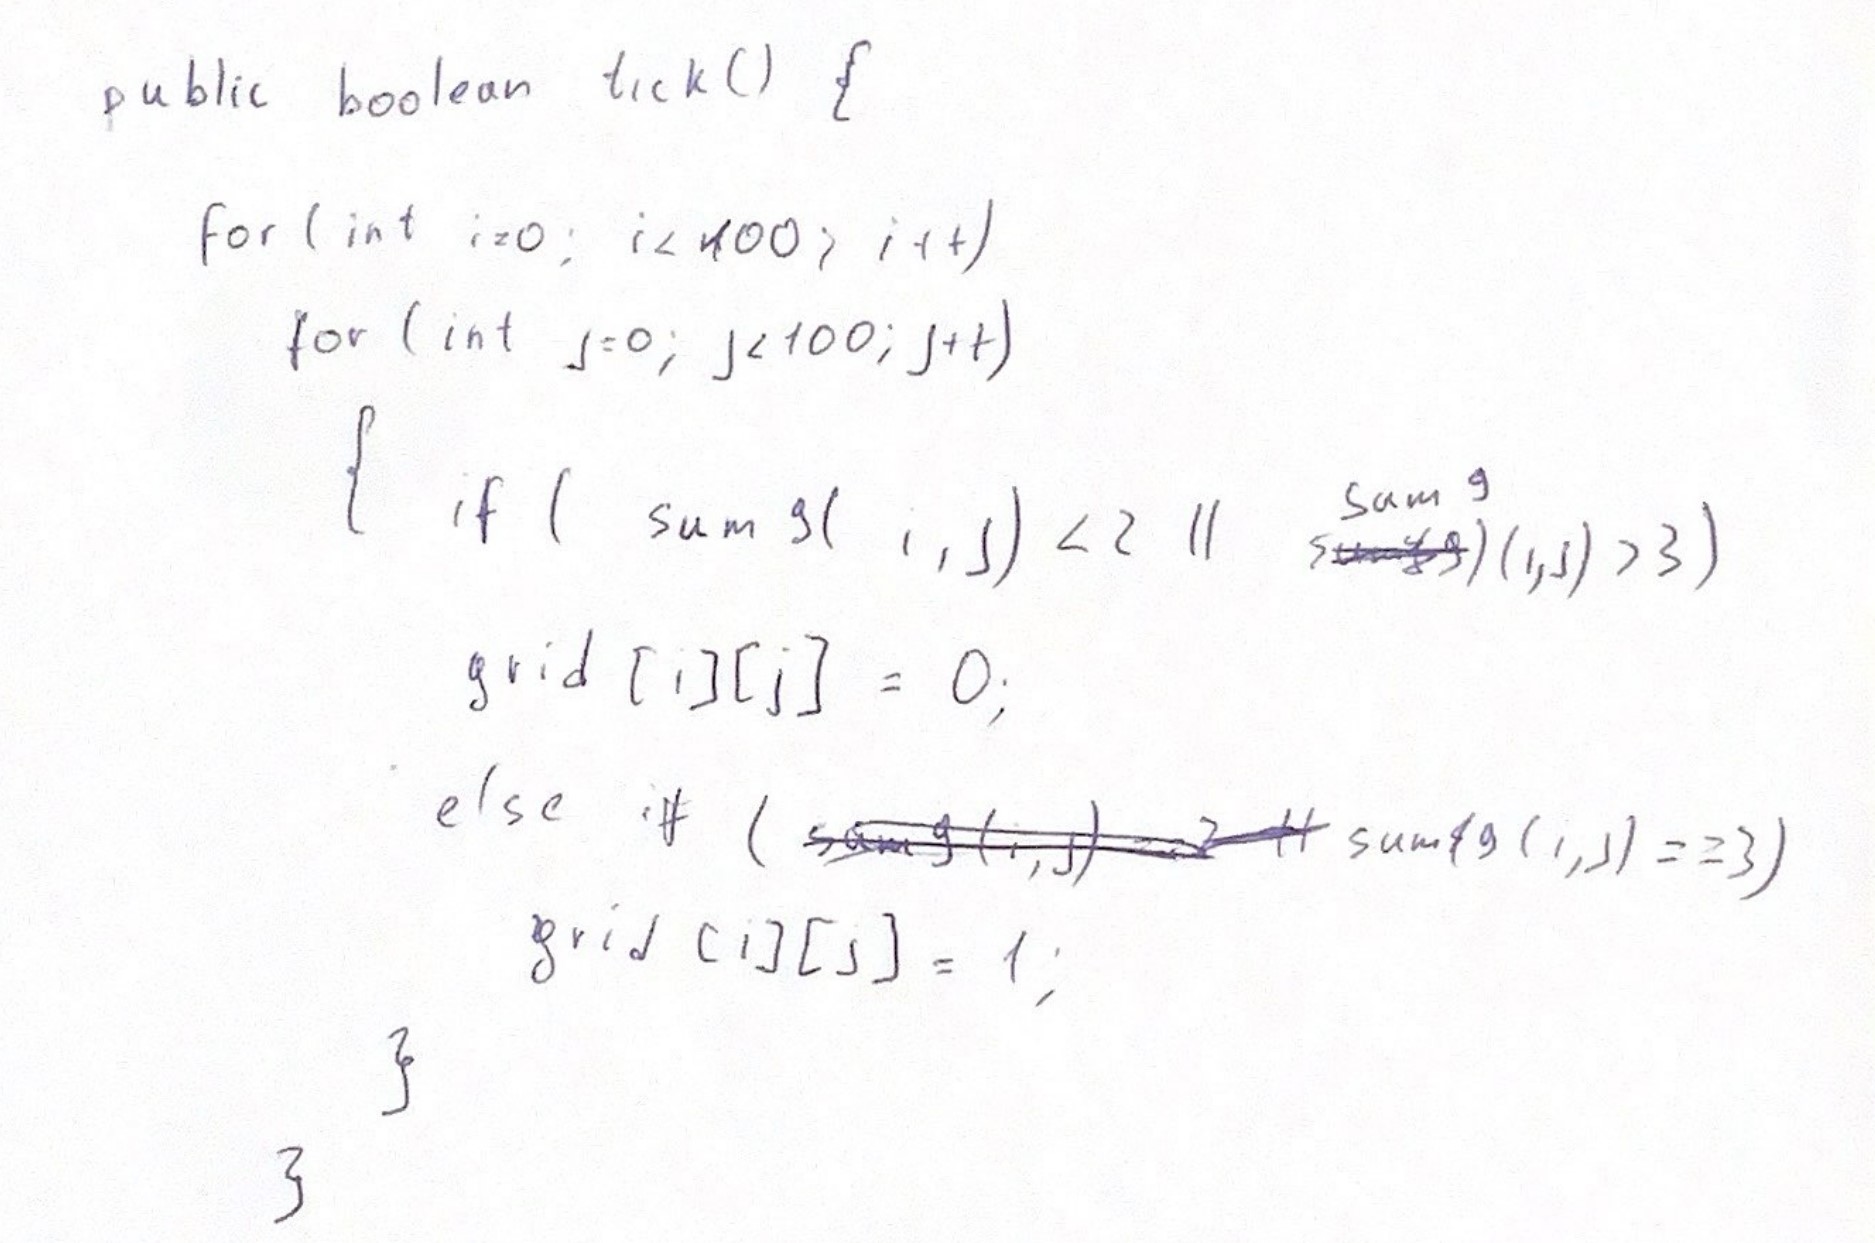 public boolean tick() {
for (int i=0; i<100; i++)
for (int j=0; j<100; j++)
{ if ( sum9( i, j) <2 || sum9 (i,j) >3)
grid [i][j] = 0;
else if ( sum9 (i,j) ==3)
grid [i][j] = 1;
}
}